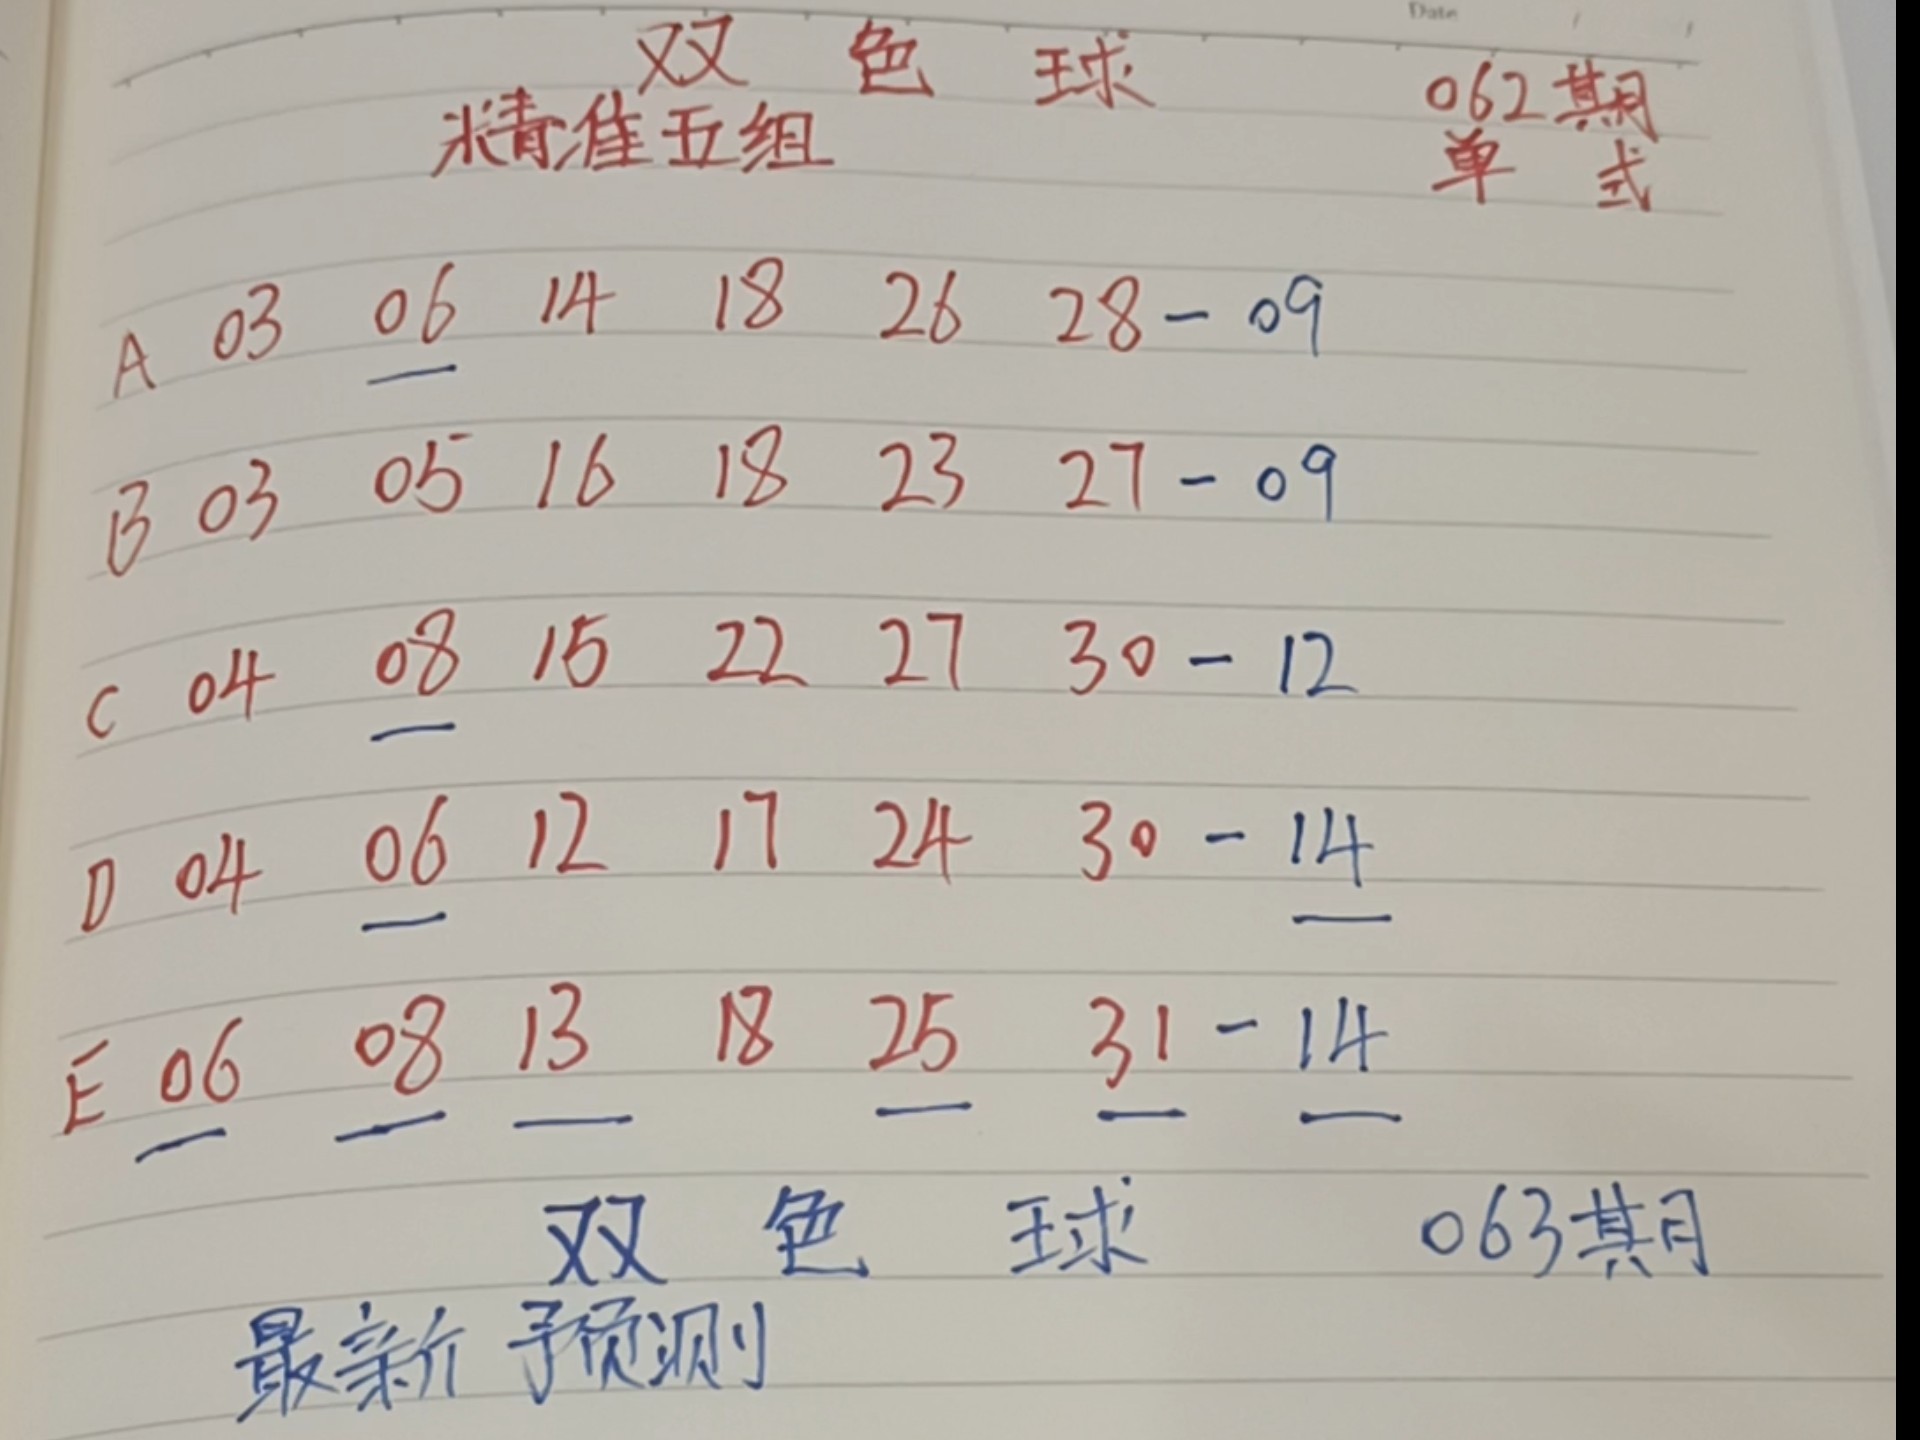 Date / /
双 色 球 062期
精准五组 单 式
A 03 06 14 18 26 28 - 09
B 03 05 16 18 23 27 - 09
C 04 08 15 22 27 30 - 12
D 04 06 12 17 24 30 - 14
E 06 08 13 18 25 31 - 14
双 色 球 063期
最新预测